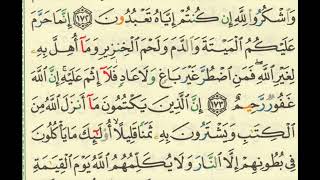 وَٱشْكُرُوا۟ لِلَّهِ إِن كُنتُمْ إِيَّاهُ تَعْبُدُونَ ١٧٢ إِنَّمَا حَرَّمَ
عَلَيْكُمُ ٱلْمَيْتَةَ وَٱلدَّمَ وَلَحْمَ ٱلْخِنزِيرِ وَمَآ أُهِلَّ بِهِۦ
لِغَيْرِ ٱللَّهِ فَمَنِ ٱضْطُرَّ غَيْرَ بَاغٍ وَلَا عَادٍ فَلَآ إِثْمَ عَلَيْهِ إِنَّ ٱللَّهَ
غَفُورٌ رَّحِيمٌ ١٧٣ إِنَّ ٱلَّذِينَ يَكْتُمُونَ مَآ أَنزَلَ ٱللَّهُ مِنَ
ٱلْكِتَٰبِ وَيَشْتَرُونَ بِهِۦ ثَمَنًا قَلِيلًا أُو۟لَٰٓئِكَ مَا يَأْكُلُونَ
فِى بُطُونِهِمْ إِلَّا ٱلنَّارَ وَلَا يُكَلِّمُهُمُ ٱللَّهُ يَوْمَ ٱلْقِيَٰمَةِ